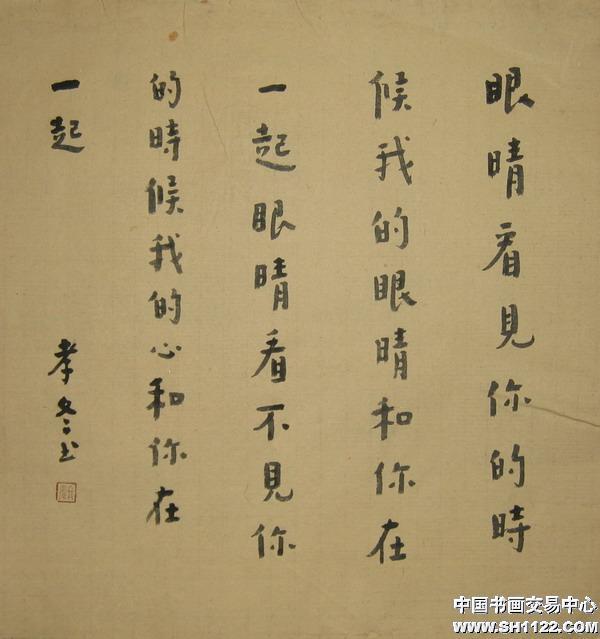 眼睛看見你的時
候我的眼睛和你在
一起眼睛看不見你
的時候我的心和你在
一起
孝冬书
中国书画交易中心
www.SH1122.com